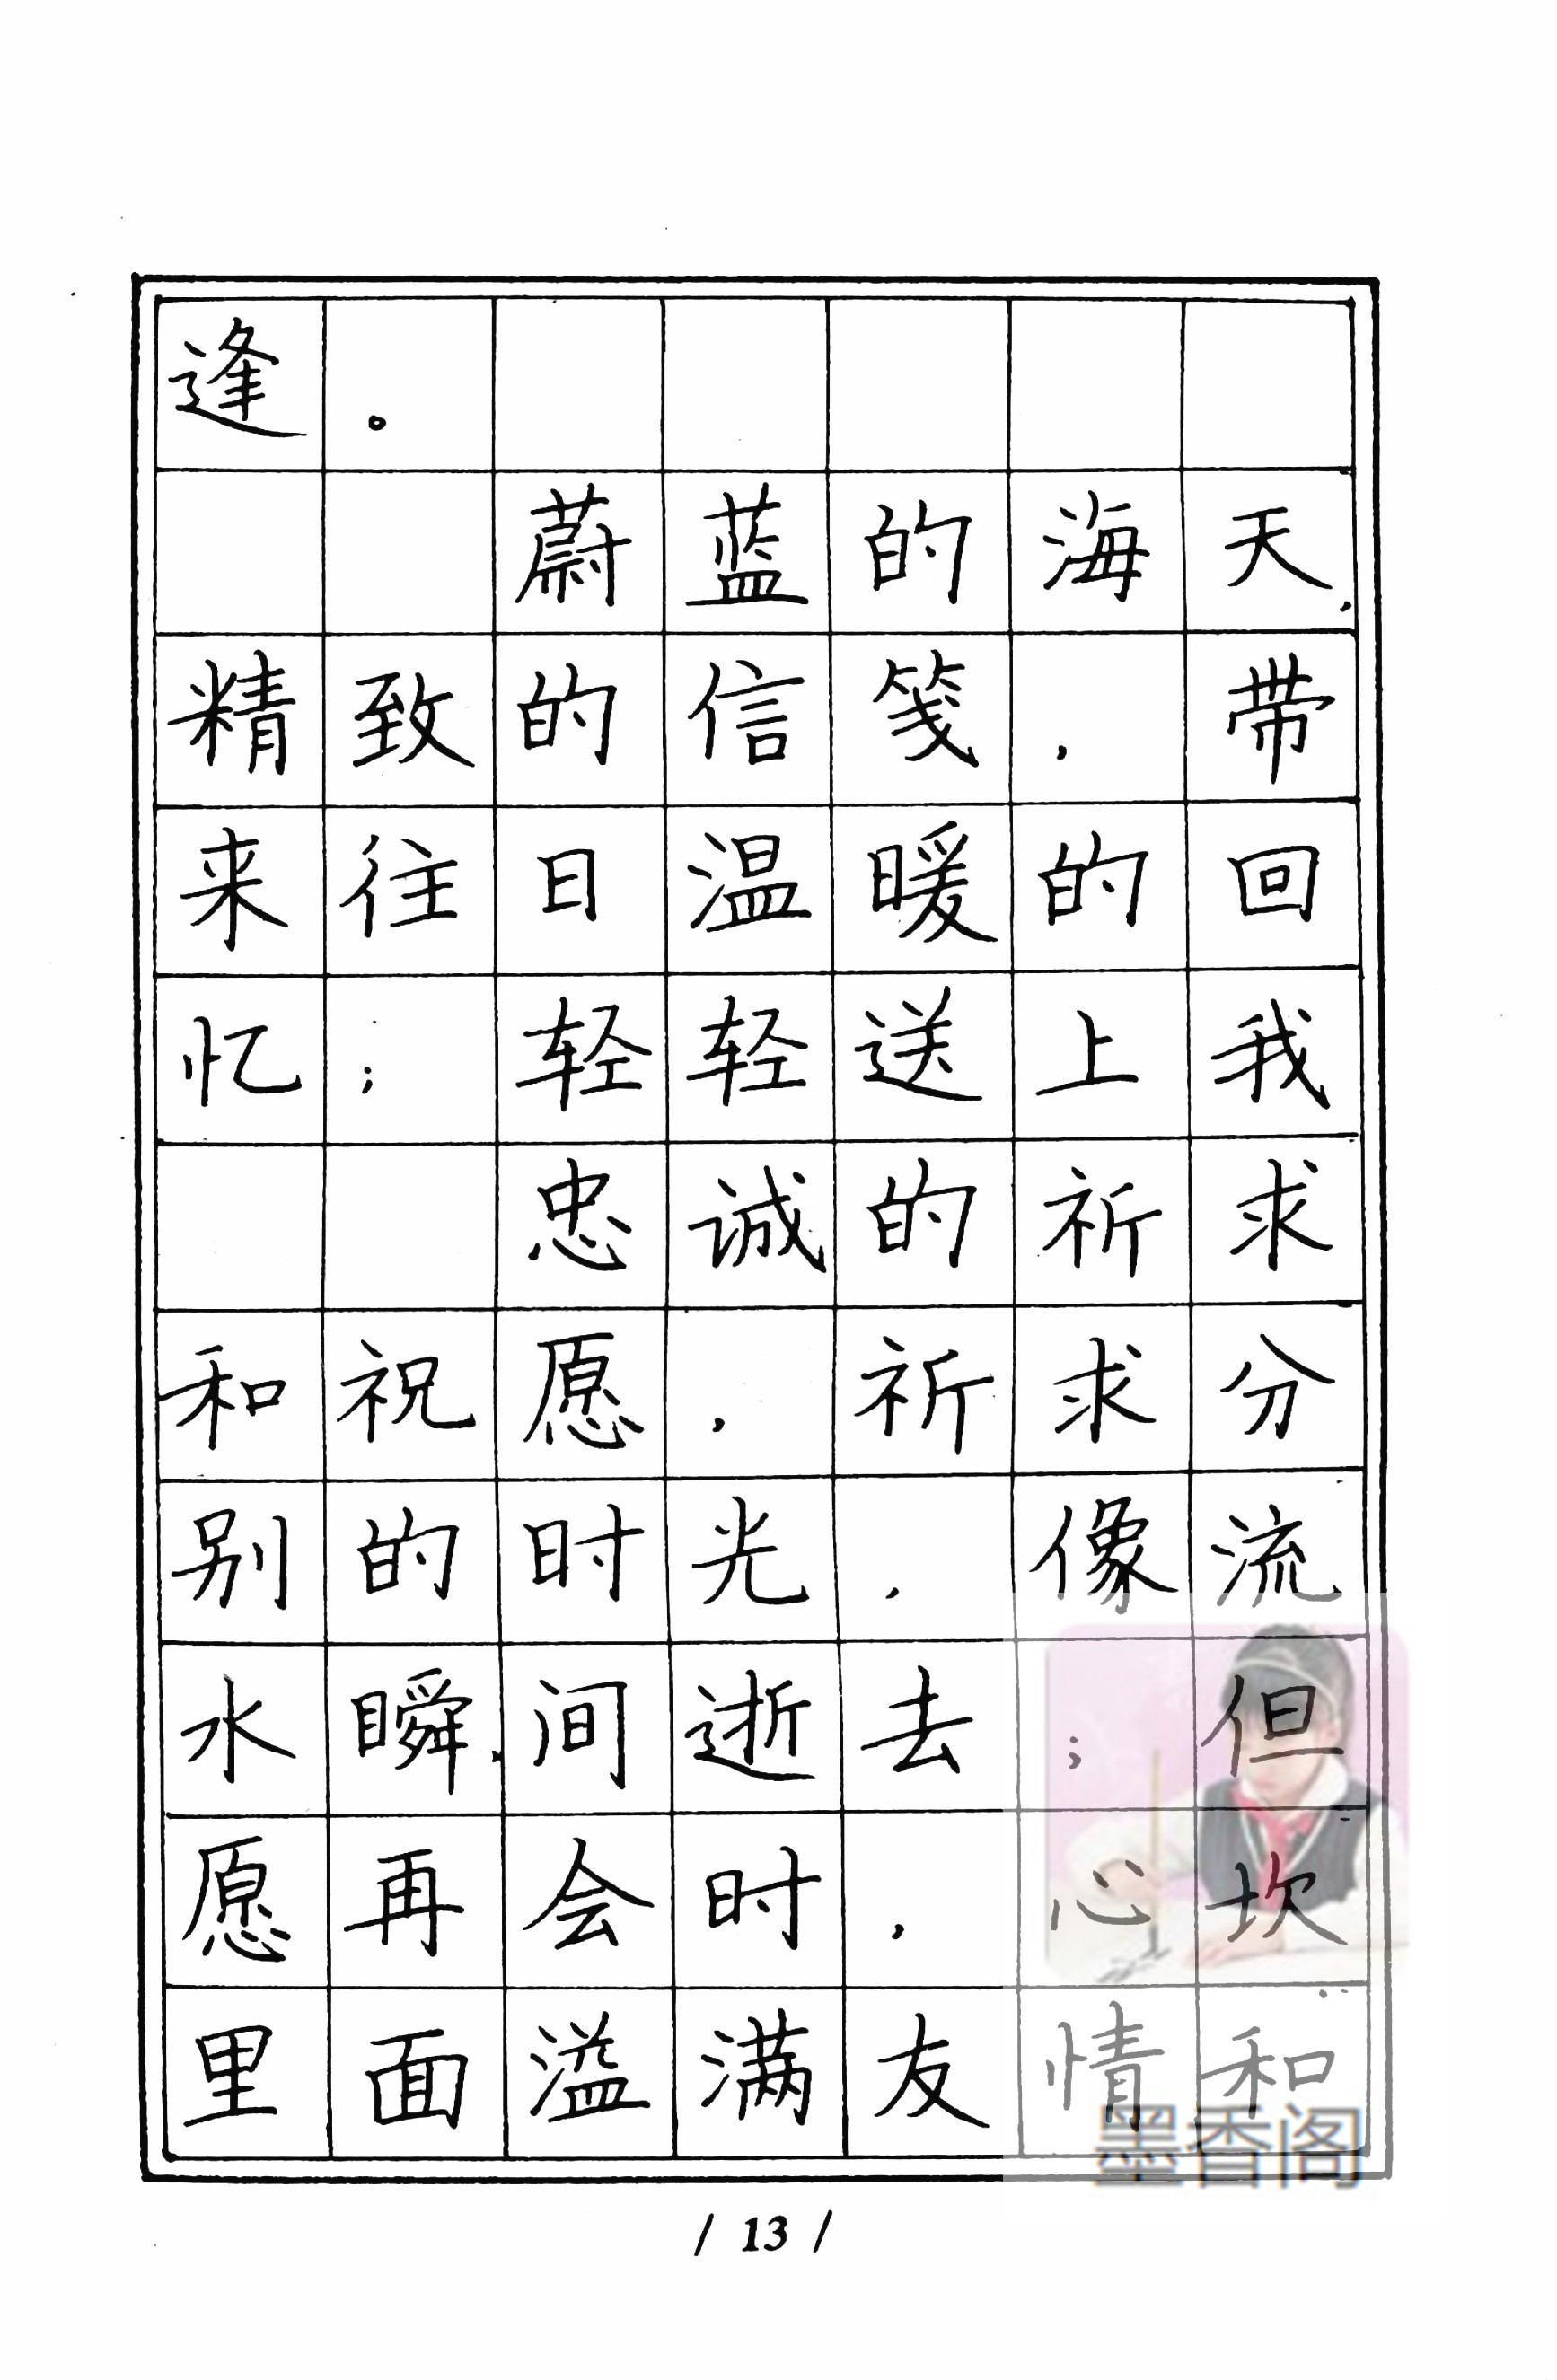 逢。
蔚蓝的海天，
精致的信笺，带
来往日温暖的回
忆；轻轻送上我
忠诚的祈求
和祝愿，祈求分
别的时光，像流
水瞬间逝去；但
愿再会时，心坎
里面溢满友情和
墨香阁
/ 13 /